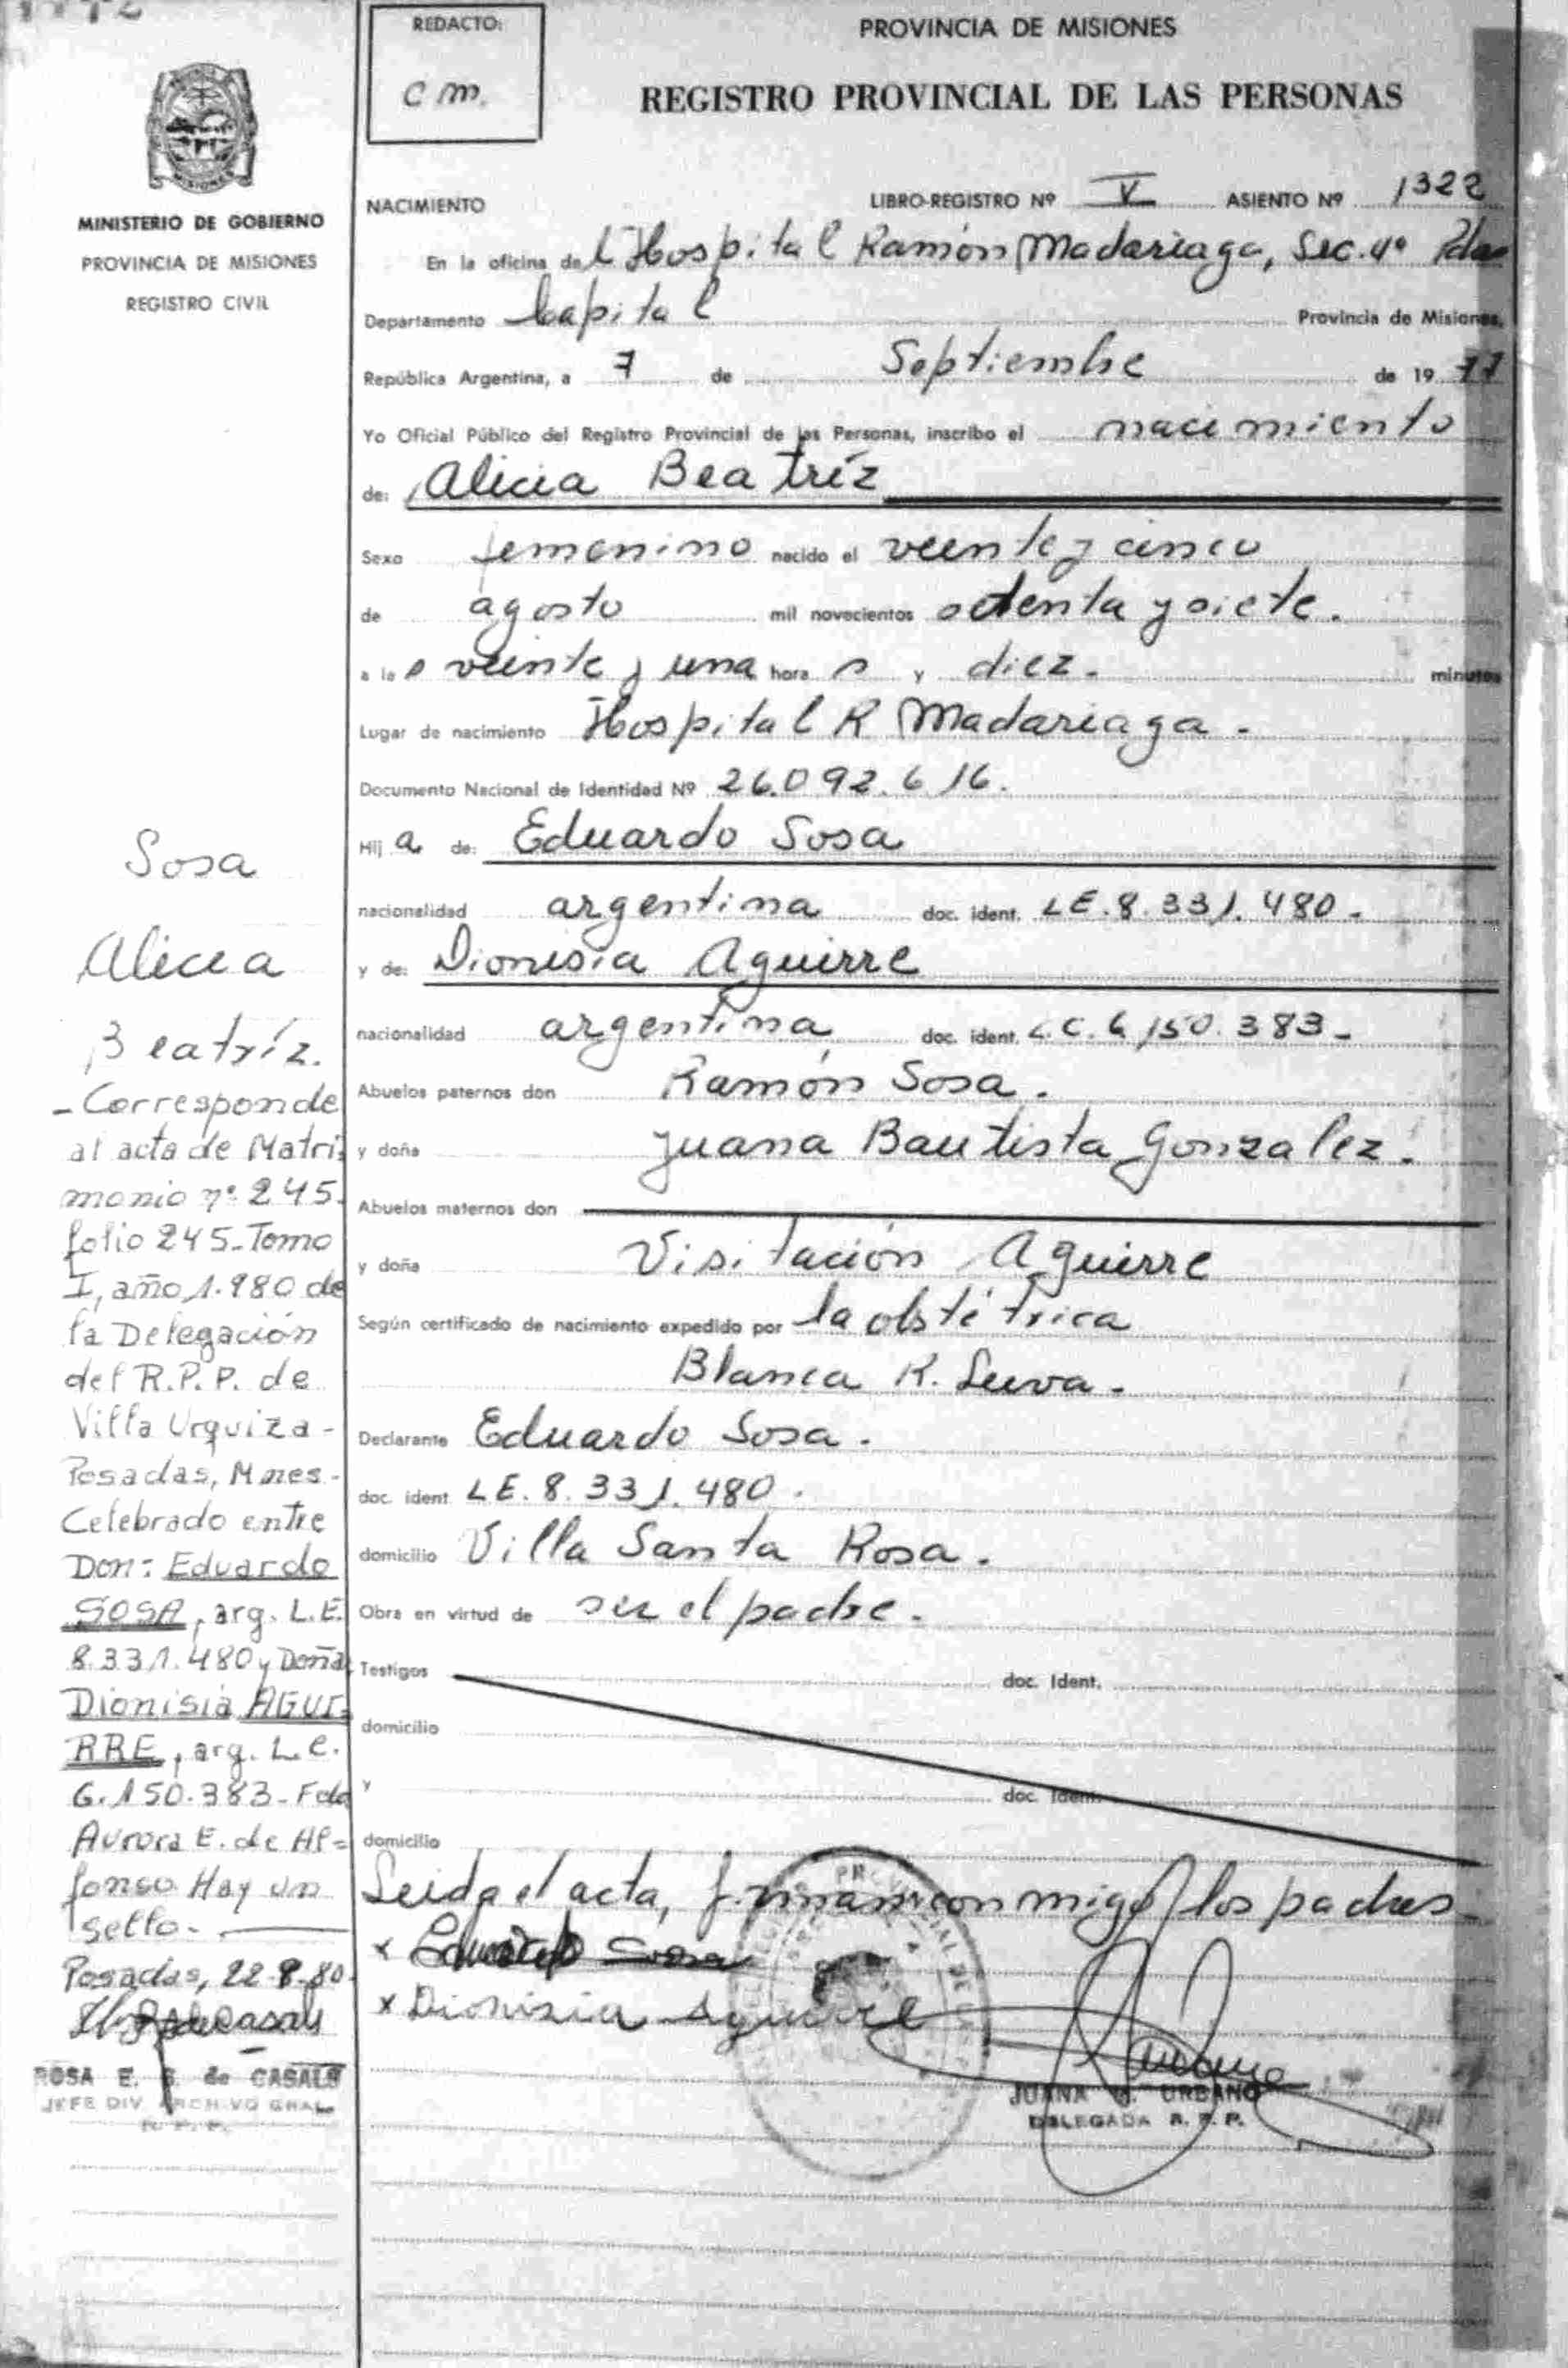 REDACTO:
C m.
PROVINCIA DE MISIONES
REGISTRO PROVINCIAL DE LAS PERSONAS
MISIONES
MINISTERIO DE GOBIERNO
PROVINCIA DE MISIONES
REGISTRO CIVIL
NACIMIENTO LIBRO-REGISTRO Nº V ASIENTO Nº 1322
En la oficina del Hospital Ramón Madariaga, Sec. 4ª Pdas
Departamento Capital Provincia de Misiones,
República Argentina, a 7 de Septiembre de 1977
Yo Oficial Público del Registro Provincial de las Personas, inscribo el nacimiento
de: Alicia Beatríz
Sexo femenino nacido el veinte y cinco
de agosto mil novecientos setenta y siete.
a las veinte y una horas y diez. minutos
Lugar de nacimiento Hospital R Madariaga.
Documento Nacional de Identidad Nº 26.092.616.
Hija de: Eduardo Sosa
nacionalidad argentina doc. ident. LE. 8.331.480.
y de: Dionisia Aguirre
nacionalidad argentina doc. ident. L.C. 6.150.383.
Abuelos paternos don Ramón Sosa.
y doña Juana Bautista Gonzalez.
Abuelos maternos don
y doña Visitación Aguirre
Según certificado de nacimiento expedido por la obstétrica
Blanca R. Leiva.
Declarante Eduardo Sosa.
doc. ident LE. 8.331.480.
domicilio Villa Santa Rosa.
Obra en virtud de ser el padre.
Testigos doc. Ident.
domicilio
y doc. Ident.
domicilio
Leida el acta, firman conmigo los padres
x Eduardo Sosa
x Dionisia Aguirre
JUANA URBANO
DELEGADA R. P. P.
Sosa
Alicia
Beatríz.
- Corresponde
al acta de Matri
monio nº 245.
folio 245. Tomo
I, año 1.980 de
la Delegación
del R.P.P. de
Villa Urquiza -
Posadas, Mnes.
Celebrado entre
Don: Eduardo
SOSA, arg. L.E.
8.331.480 y Doña
Dionisia AGUI-
RRE, arg. L.C.
6.150.383 - Fdo
Aurora E. de Al-
fonso Hay un
sello.
Posadas, 22-8-80.
ROSA E. de CASALS
JEFE DIV. ARCHIVO GRAL.
R. P. P.